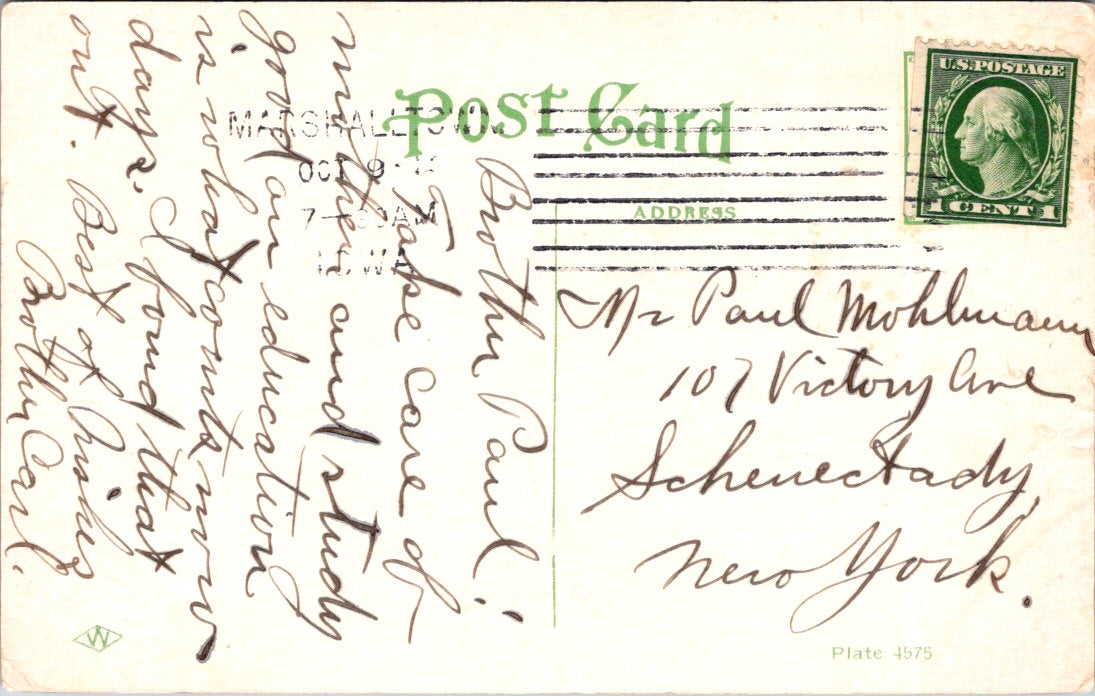 Post Card
MARSHALLTOWN
OCT 9
7— 30AM
IOWA
U.S. POSTAGE
1 CENT 1
ADDRESS
Brother Paul!
Take care of
mother and study
good, an education
is what counts now
days. I found that
out. Best of wishes
Brother Carl.
Mr Paul Mohlmann
107 Victory Ave
Schenectady,
New York.
W
Plate 4575